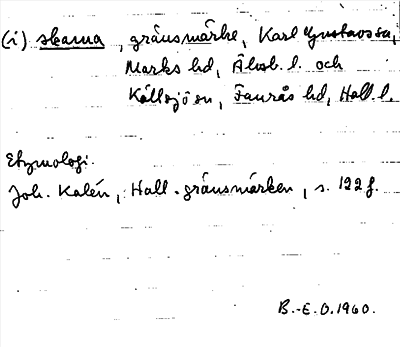 (i) skarna, gränsmärke, Karl Gustavs sn,
Marks hd, Älvsb. l. och
Källsjö sn, Faurås hd, Hall. l.
Etymologi.
Joh. Kalén, Hall. gränsmärken, s. 122 f.
B.-E.O. 1960.